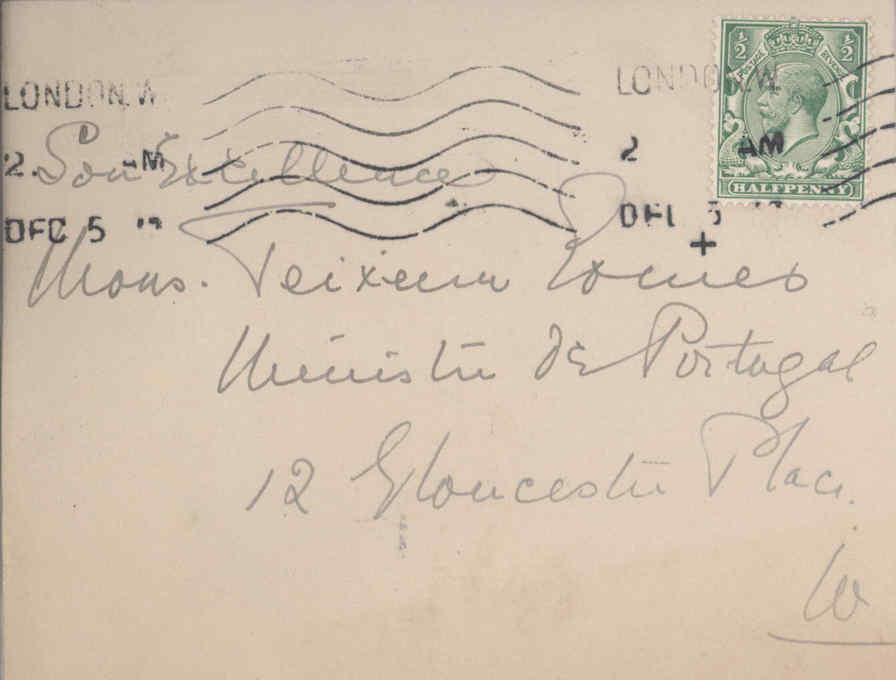 LONDON.W LONDON.W
2. AM 2 AM
DEC 5 DEC 5
½ ½
POSTAGE REVENUE
HALFPENNY
Son Excellence
Mons. Teixeira Gomes
Ministre de Portugal
12 Gloucester Place.
W